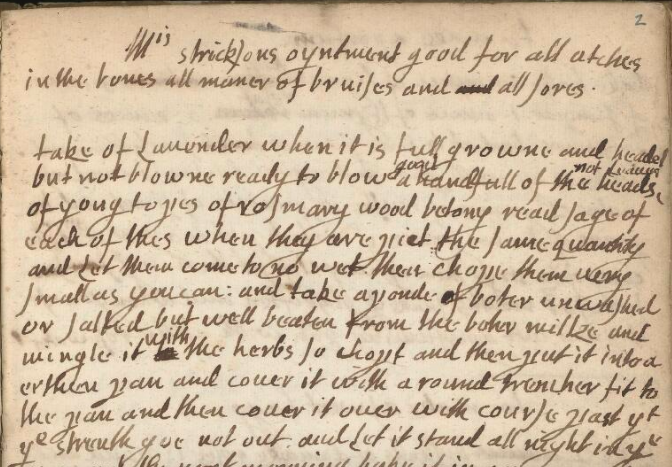 2
Mis stricksons oyntment good for all atches
in the bones all maner of bruises and and all sores.
take of Lavender when it is full growne and headed
but not blowne ready to blow a good handfull of the heads not leaves
of yong topes of rosmary wood betony read sage of
each of thes when they are pict the same quantity
and Let them come to no wet then chope them very
small as you can: and take a ponde of boter unwashed
or salted but well beaten from the boter milke and
mingle it with the herbs so chopt and then put it into a
erthen pan and couer it with a round trencher fit to
the pan and then couer it over with course past yt
ye strenth goe not out. and Let it stand all night in ye